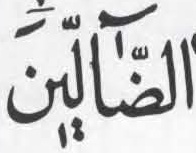 الضَّآلِّينَ